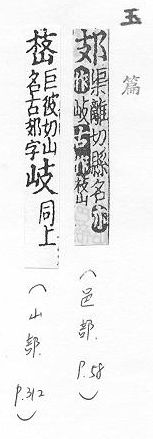 玉篇
渠離切縣名亦
作岐古作山
(邑部. P.58)
巨彼切山
名古字
岐同上
(山部. P.312)